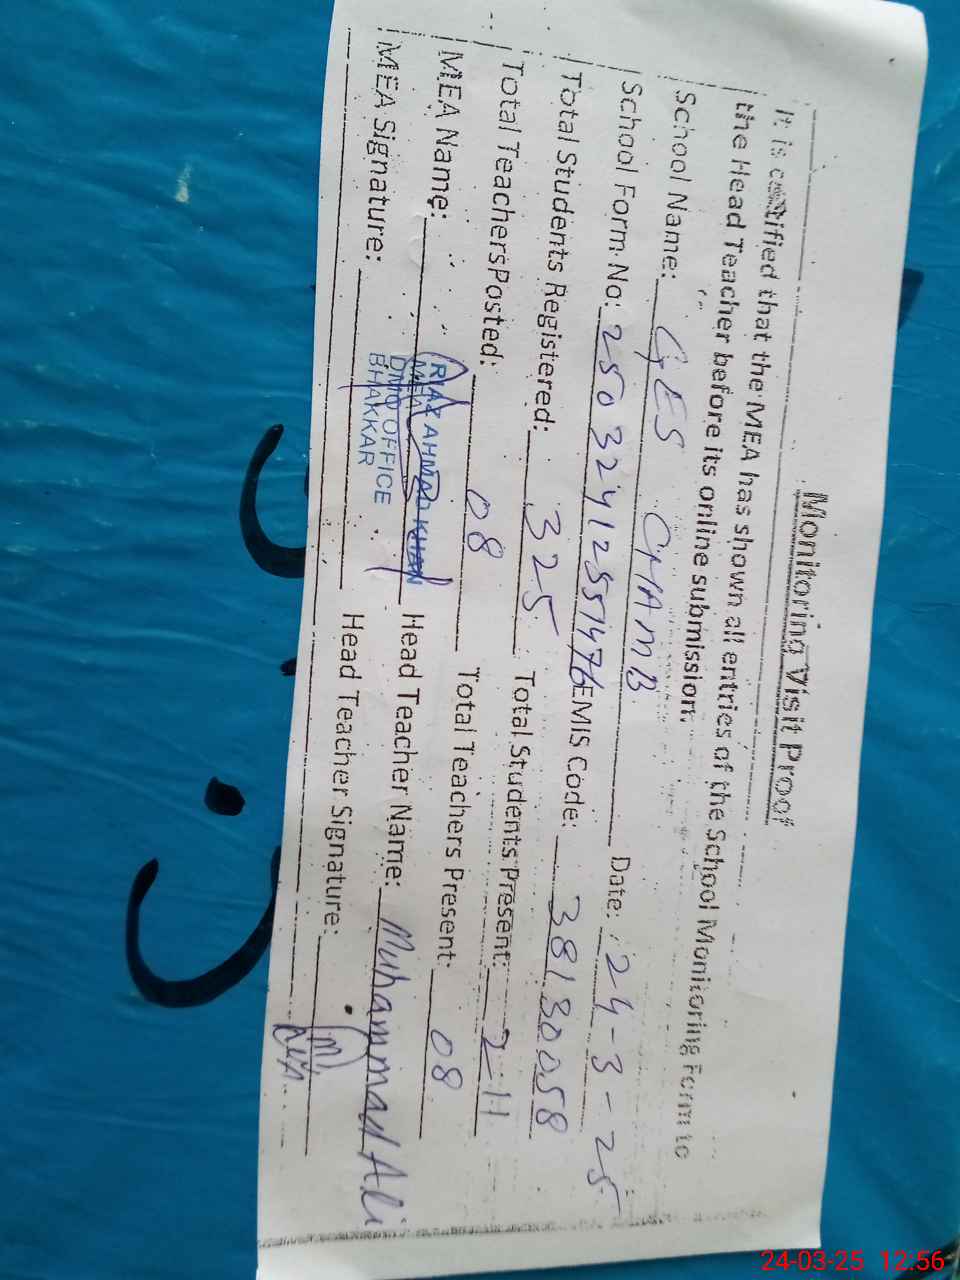 Monitoring Visit Proof
It is certified that the MEA has shown all entries of the School Monitoring Form to
the Head Teacher before its online submission.
School Name: GES CHAMB Date: 24-3-25
School Form No: 25032412551476 EMIS Code: 38130058
Total Students Registered: 325 Total Students Present: 211
Total Teachers Posted: 08 Total Teachers Present: 08
MEA Name: RIAZ AHMAD KHAN Head Teacher Name: Muhammad Ali
MEA
DMO OFFICE
BHAKKAR
MEA Signature: Head Teacher Signature:
24-03-25 12:56